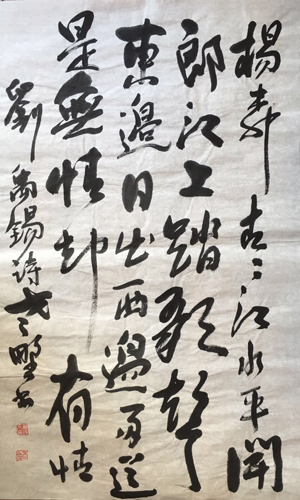 楊柳青々江水平聞
郎江上踏歌聲
東邊日出西邊雨道
是無情却有情
劉禹錫詩 野書